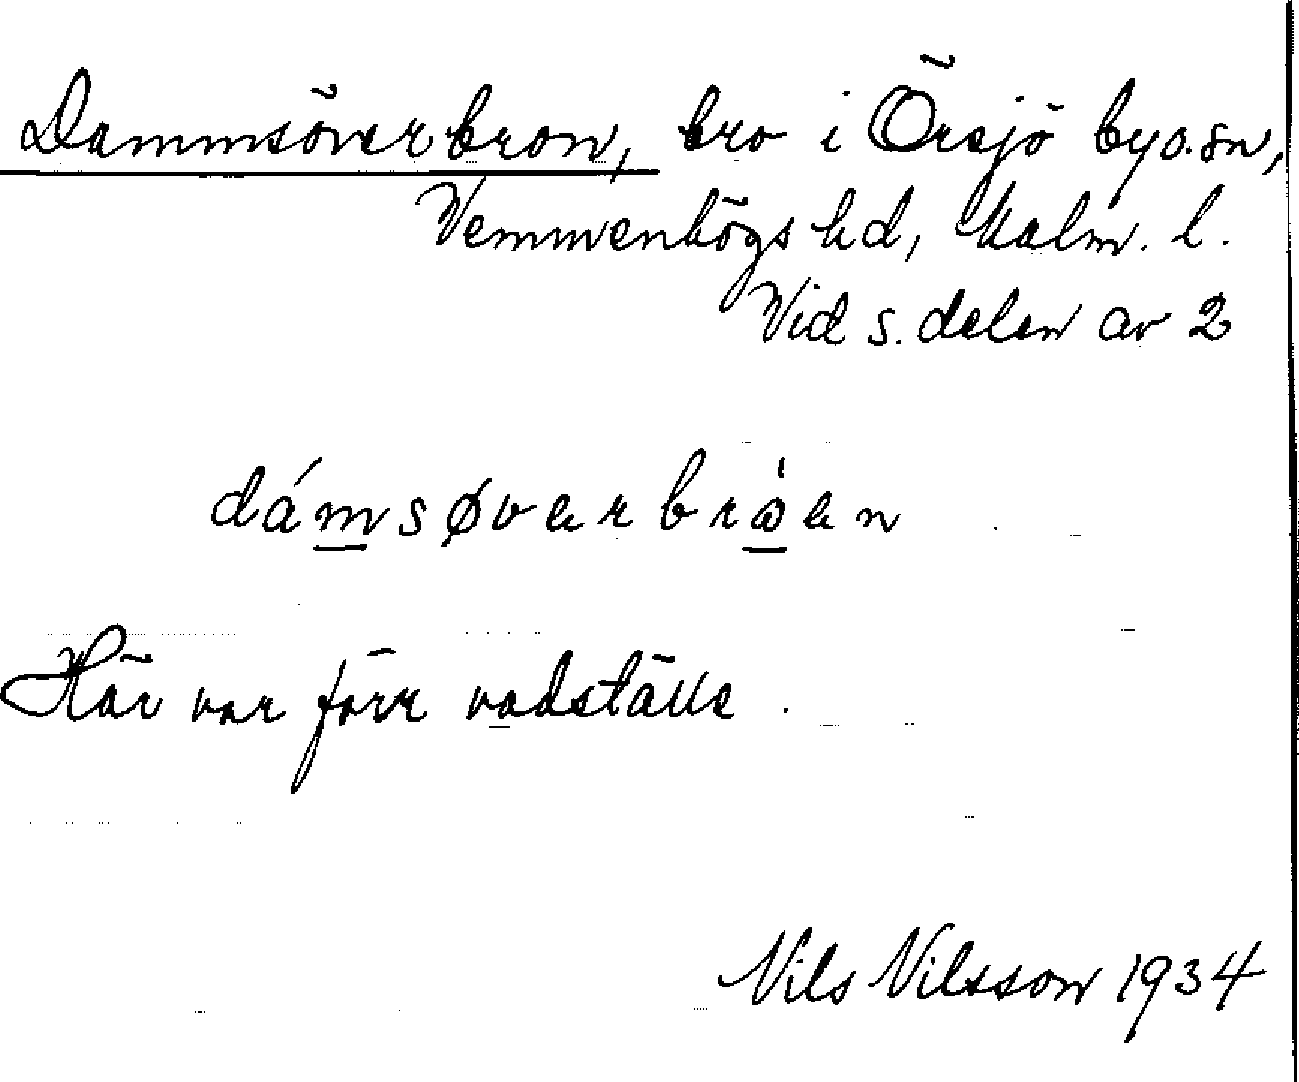 Dammsöverbron, bro i Örsjö by o. sn,
Vemmenhögs hd, Malm. l.
Vid s. delen av 2
dámsøverbrὰen
Här var förr vadställe.
Nils Nilsson 1934